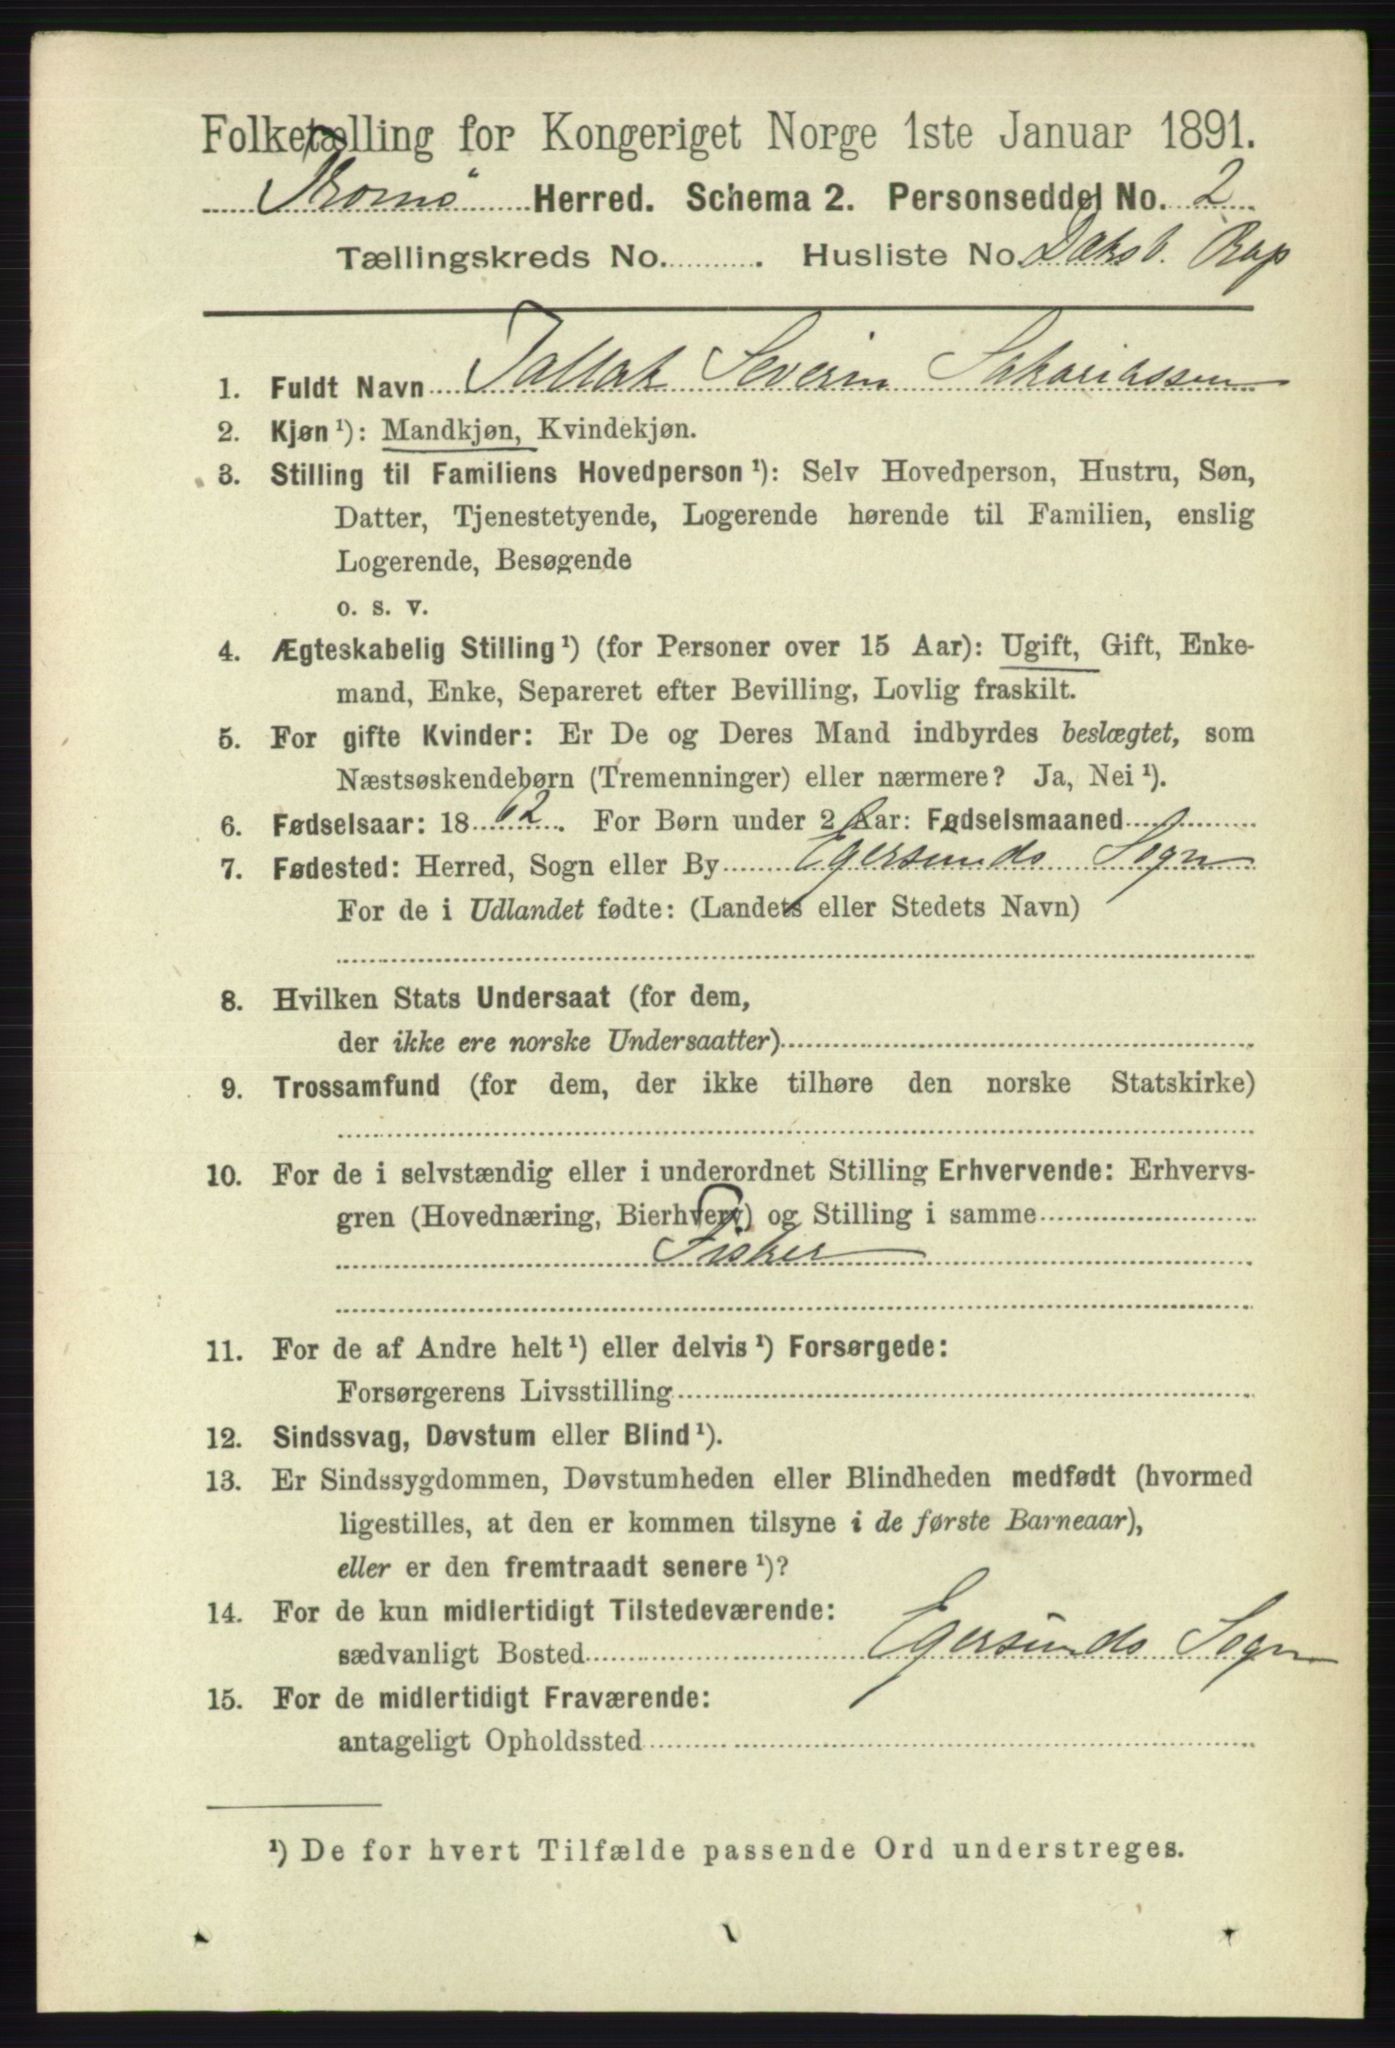 Folketælling for Kongeriget Norge 1ste Januar 1891.
Tromø Herred. Schema 2. Personseddel No. 2
Tællingskreds No. ......... . Husliste No. Dæksb. Rap
1. Fuldt Navn Tallak Severin Sakariassen
2. Kjøn ¹): Mandkjøn, Kvindekjøn.
3. Stilling til Familiens Hovedperson ¹): Selv Hovedperson, Hustru, Søn,
Datter, Tjenestetyende, Logerende hørende til Familien, enslig
Logerende, Besøgende
o. s. v.
4. Ægteskabelig Stilling ¹) (for Personer over 15 Aar): Ugift, Gift, Enke-
mand, Enke, Separeret efter Bevilling, Lovlig fraskilt.
5. For gifte Kvinder: Er De og Deres Mand indbyrdes beslægtet, som
Næstsøskendebørn (Tremenninger) eller nærmere? Ja, Nei ¹).
6. Fødselsaar: 1862. For Børn under 2 Aar: Fødselsmaaned
7. Fødested: Herred, Sogn eller By Egersunds Sogn
For de i Udlandet fødte: (Landets eller Stedets Navn)
8. Hvilken Stats Undersaat (for dem,
der ikke ere norske Undersaatter)
9. Trossamfund (for dem, der ikke tilhøre den norske Statskirke)
10. For de i selvstændig eller i underordnet Stilling Erhvervende: Erhvervs-
gren (Hovednæring, Bierhverv) og Stilling i samme
Fisker
11. For de af Andre helt ¹) eller delvis ¹) Forsørgede:
Forsørgerens Livsstilling
12. Sindssvag, Døvstum eller Blind ¹).
13. Er Sindssygdommen, Døvstumheden eller Blindheden medfødt (hvormed
ligestilles, at den er kommen tilsyne i de første Barneaar),
eller er den fremtraadt senere ¹)?
14. For de kun midlertidigt Tilstedeværende:
sædvanligt Bosted Egersunds Sogn
15. For de midlertidigt Fraværende:
antageligt Opholdssted
¹) De for hvert Tilfælde passende Ord understreges.